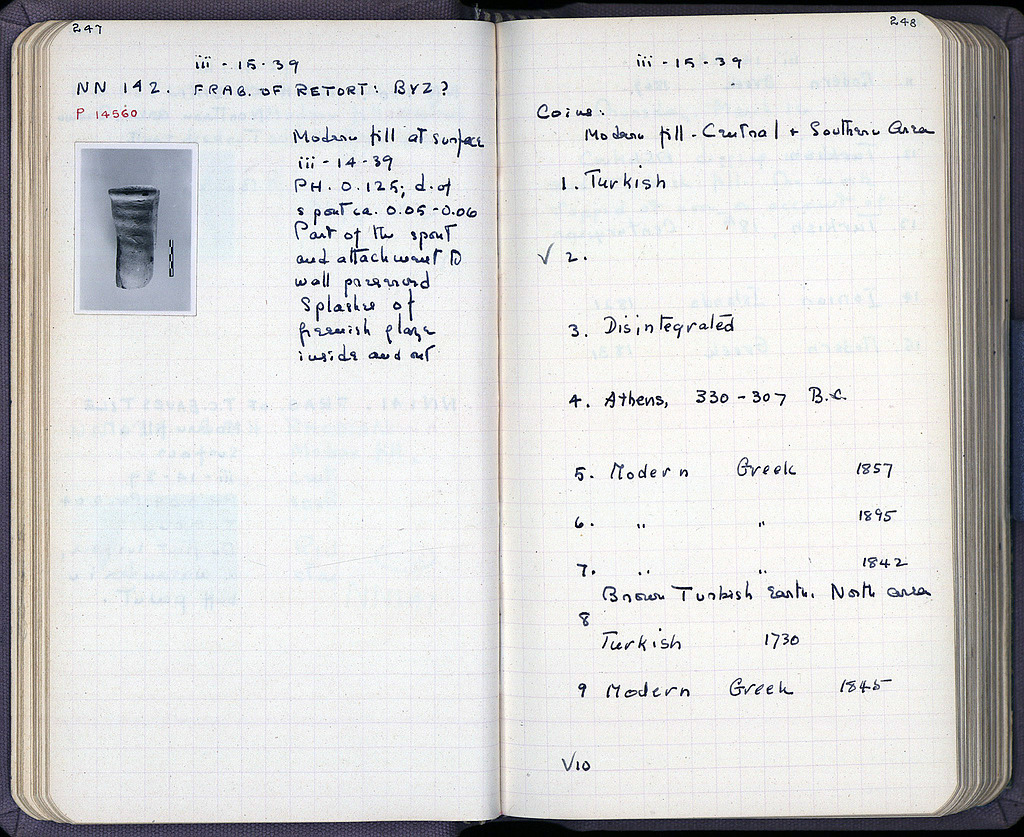 247
iii - 15 - 39
NN 142. FRAG. OF RETORT: BYZ?
P 14560
Modern fill at surface
iii - 14 - 39
PH. 0.125; d. of
spout ca. 0.05 - 0.06
Part of the spout
and attachment to
wall preserved
Splashes of
greenish glaze
inside and out
248
iii - 15 - 39
Coins:
Modern fill - Central + Southern Area
1. Turkish
√ 2.
3. Disintegrated
4. Athens, 330 - 307 B.C.
5. Modern Greek 1857
6. " " 1895
7. " " 1842
Brown Turkish Earth. North area
8
Turkish 1730
9 Modern Greek 1845
√10